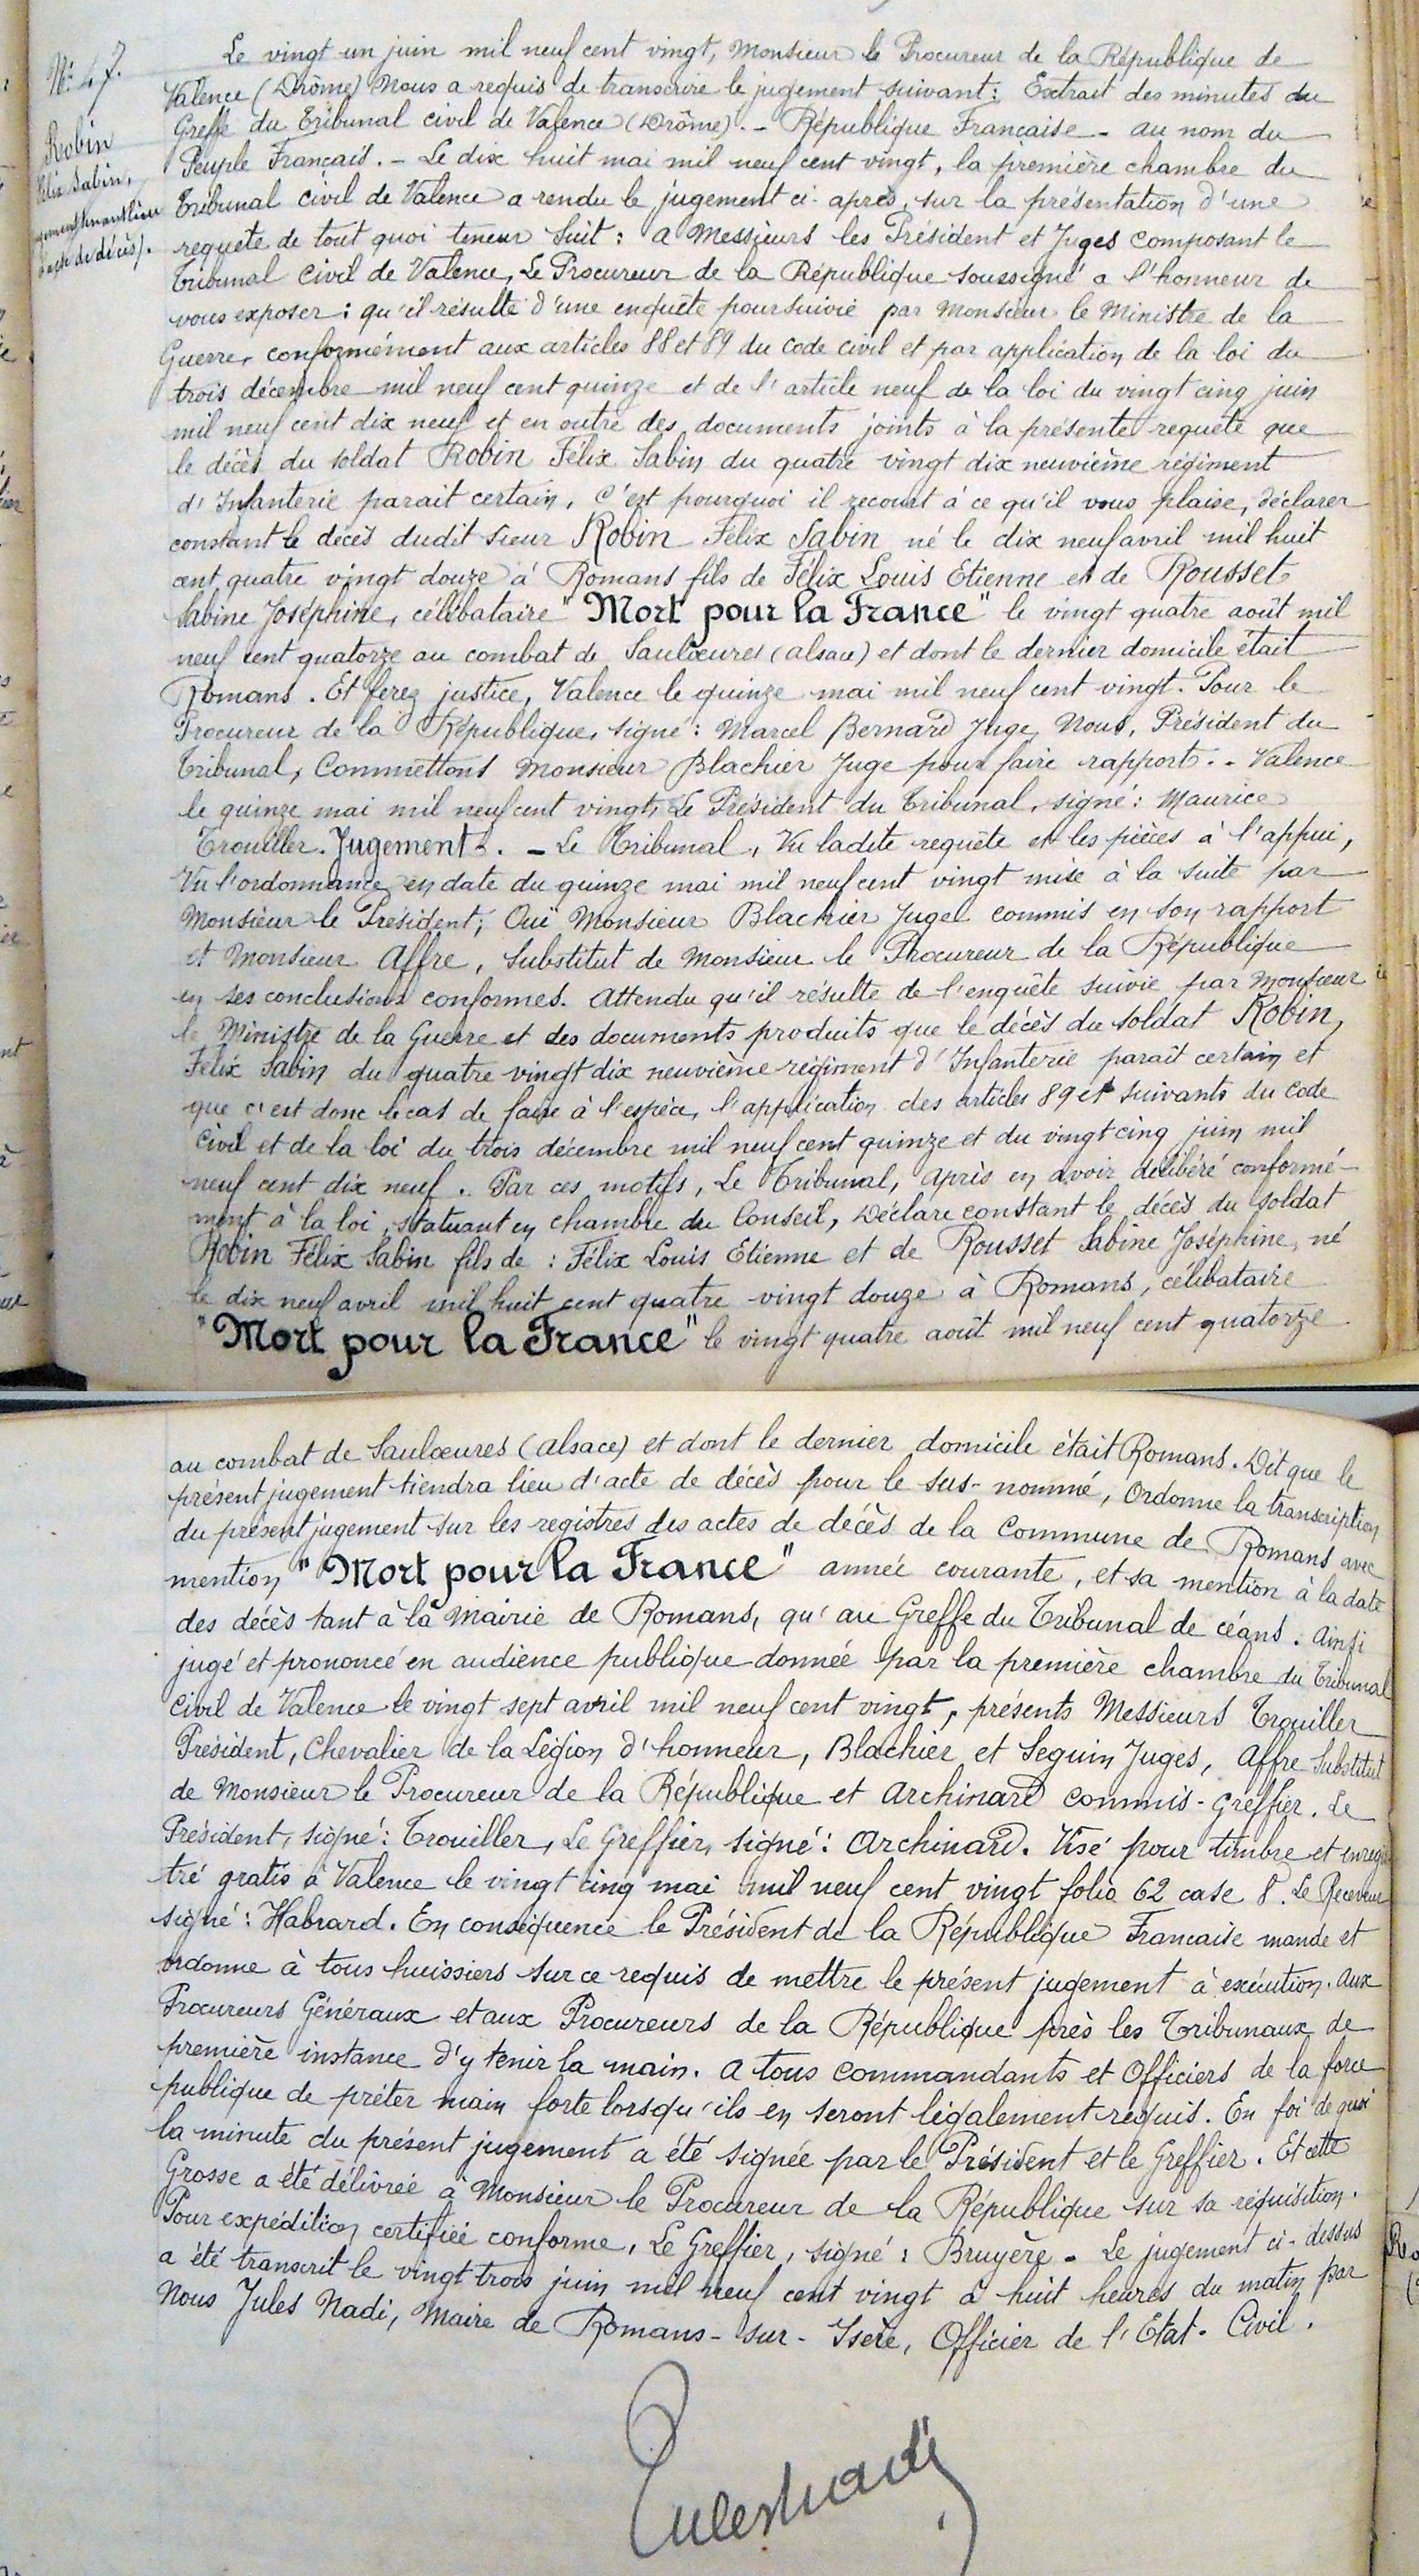 N° 47.
Robin
Félix Sabin,
jugement tenant lieu
d'acte de décès).
Le vingt un juin mil neuf cent vingt, Monsieur le Procureur de la République de
Valence (Drôme) Nous a requis de transcrire le jugement suivant: Extrait des minutes du
Greffe du Tribunal civil de Valence (Drôme). - République Française - au nom du
Peuple Français. - Le dix huit mai mil neuf cent vingt, la première chambre du
Tribunal civil de Valence a rendu le jugement ci-après, sur la présentation d'une
requête de tout quoi teneur suit: a Messieurs les Président et Juges composant le
Tribunal civil de Valence, Le Procureur de la République soussigné a l'honneur de
vous exposer: qu'il résulte d'une enquête poursuivie par Monsieur le Ministre de la
Guerre, conformément aux articles 88 et 89 du code civil et par application de la loi du
trois décembre mil neuf cent quinze et de l'article neuf de la loi du vingt cinq juin
mil neuf cent dix neuf et en outre des documents joints à la présente requête que
le décès du soldat Robin Félix Sabin du quatre vingt dix neuvième régiment
d'Infanterie parait certain, C'est pourquoi il recourt à ce qu'il vous plaise, déclarer
constant le décès dudit sieur Robin Félix Sabin né le dix neuf avril mil huit
cent quatre vingt douze à Romans fils de Félix Louis Etienne et de Rousset
Sabine Joséphine, célibataire "Mort pour la France" le vingt quatre août mil
neuf cent quatorze au combat de Saulœures (alsace) et dont le dernier domicile était
Romans. Et ferez justice, Valence le quinze mai mil neuf cent vingt. Pour le
Procureur de la République, signé: Marcel Bernard Juge, Nous, Président du
Tribunal, Commettons Monsieur Blachier Juge pour faire rapport. - Valence
le quinze mai mil neuf cent vingt, Le Président du Tribunal, signé: Maurice
Trouiller. Jugement. - Le Tribunal, Vu ladite requête et les pièces à l'appui,
Vu l'ordonnance en date du quinze mai mil neuf cent vingt mise à la suite par
Monsieur le Président; Oui Monsieur Blachier Juge commis en son rapport
et Monsieur Affre, Substitut de Monsieur le Procureur de la République
en ses conclusions conformes. Attendu qu'il résulte de l'enquête suivie par Monsieur
le Ministre de la Guerre et des documents produits que le décès du soldat Robin,
Félix Sabin du quatre vingt dix neuvième régiment d'Infanterie parait certain et
que c'est donc le cas de faire à l'espèce, l'application des articles 89 et suivants du Code
Civil et de la loi du trois décembre mil neuf cent quinze et du vingt cinq juin mil
neuf cent dix neuf. Par ces motifs, Le Tribunal, après en avoir délibéré conformé-
ment à la loi, statuant en chambre du Conseil, Déclare constant le décès du soldat
Robin Félix Sabin fils de: Félix Louis Etienne et de Rousset Sabine Joséphine, né
le dix neuf avril mil huit cent quatre vingt douze à Romans, célibataire
"Mort pour la France" le vingt quatre août mil neuf cent quatorze
au combat de Saulœures (alsace) et dont le dernier domicile était Romans. Dit que le
présent jugement tiendra lieu d'acte de décès pour le sus-nommé, Ordonne la transcription
du présent jugement sur les registres des actes de décès de la Commune de Romans avec
mention "Mort pour la France" année courante, et sa mention à la date
des décès tant à la Mairie de Romans, qu'au Greffe du Tribunal de céans. Ainsi
jugé et prononcé en audience publique donnée par la première chambre du Tribunal
Civil de Valence le vingt sept avril mil neuf cent vingt, présents Messieurs Trouiller
Président, Chevalier de la Légion d'honneur, Blachier et Seguin Juges, Affre Substitut
de Monsieur le Procureur de la République et Archinard commis-Greffier. Le
Président, signé: Trouiller, Le Greffier, signé: Archinard. Visé pour timbre et enregis
tré gratis à Valence le vingt cinq mai mil neuf cent vingt folio 62 case 8. Le Receveur
signé: Habrard. En conséquence le Président de la République Francaise mande et
ordonne à tous huissiers sur ce requis de mettre le présent jugement à exécution. Aux
Procureurs Généraux et aux Procureurs de la République près les Tribunaux de
première instance d'y tenir la main. A tous commandants et Officiers de la force
publique de prêter main forte lorsqu'ils en seront légalement requis. En foi de quoi
la minute du présent jugement a été signée par le Président et le Greffier. Et cette
Grosse a été délivrée à Monsieur le Procureur de la République sur sa réquisition.
Pour expédition certifiée conforme, Le Greffier, signé: Bruyère. - Le jugement ci-dessus
a été transcrit le vingt trois juin mil neuf cent vingt à huit heures du matin par
Nous Jules Nadi, Maire de Romans-sur-Isère, Officier de l'Etat-Civil.
Jules Nadi